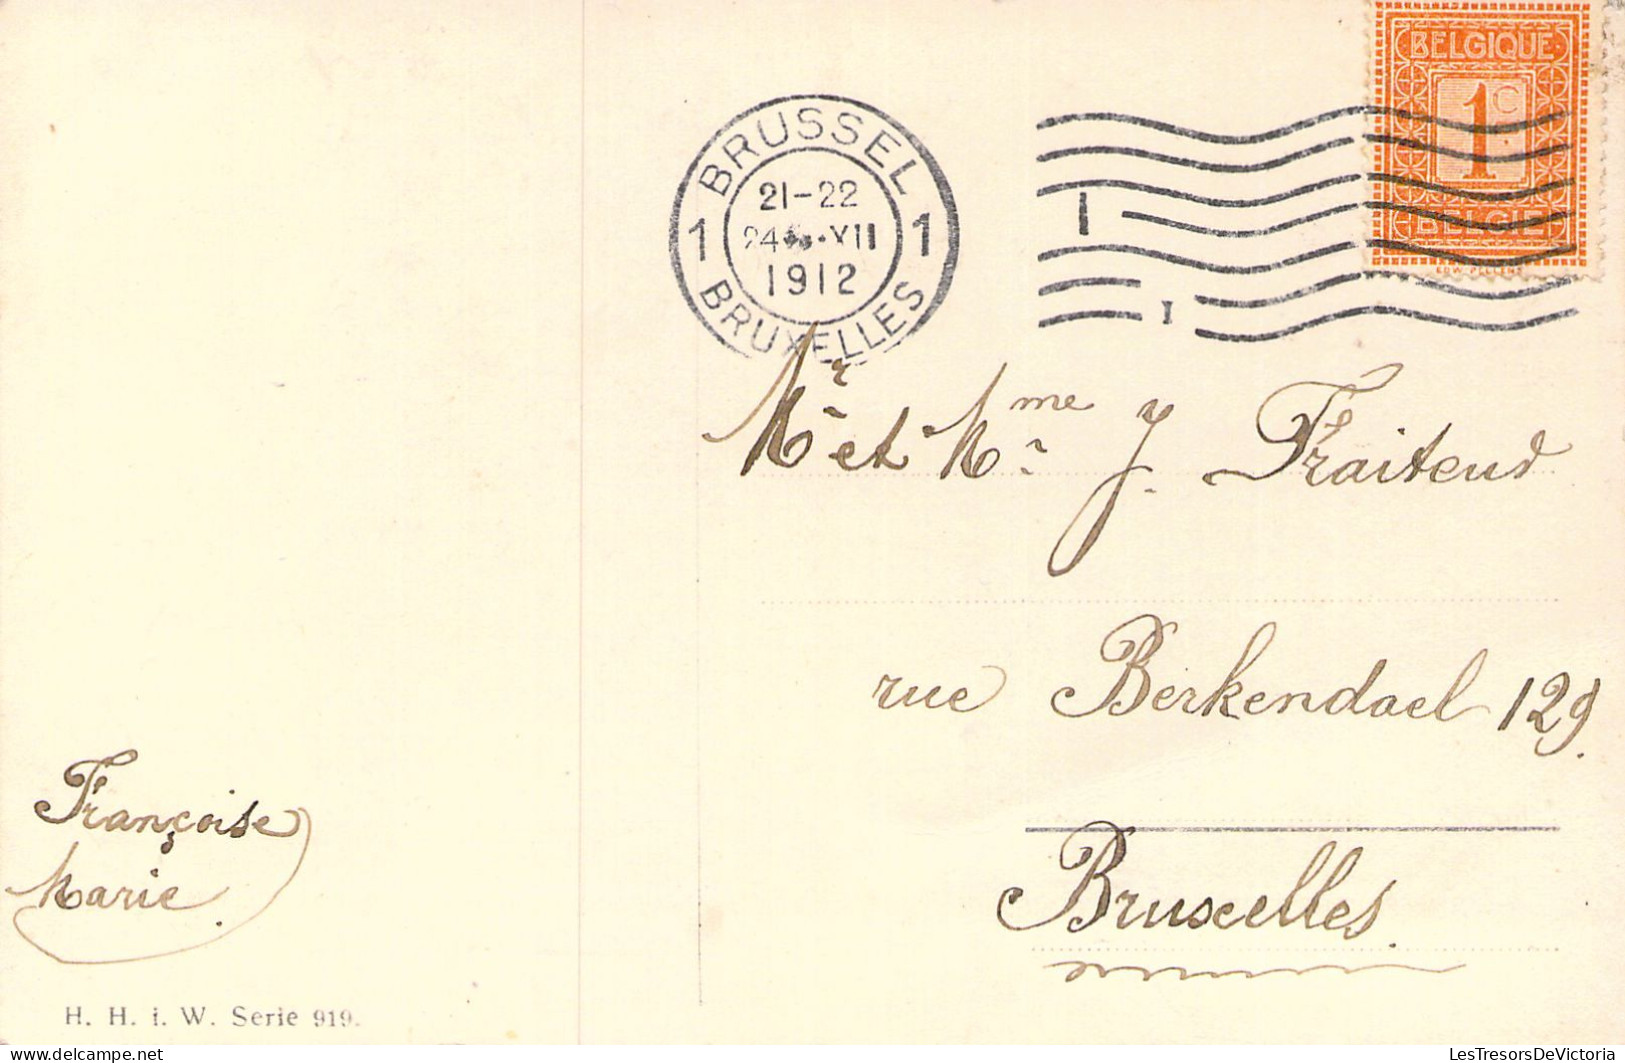 BELGIQUE
1C
BELGIE
EDW. PELLENS
BRUSSEL
21-22
1 24 XII 1
1912
BRUXELLES
I
I
Mr et Mme J. Fraiteur
rue Berkendael 129.
Bruxelles.
Françoise
Marie.
H. H. i. W. Serie 919.
delcampe.net
LesTresorsDeVictoria